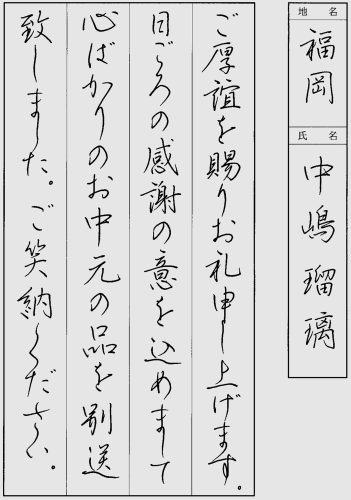 ご厚誼を賜りお礼申し上げます。
日ごろの感謝の意を込めまして
心ばかりのお中元の品を別送
致しました。ご笑納ください。
地名
福岡
氏名
中嶋瑠璃